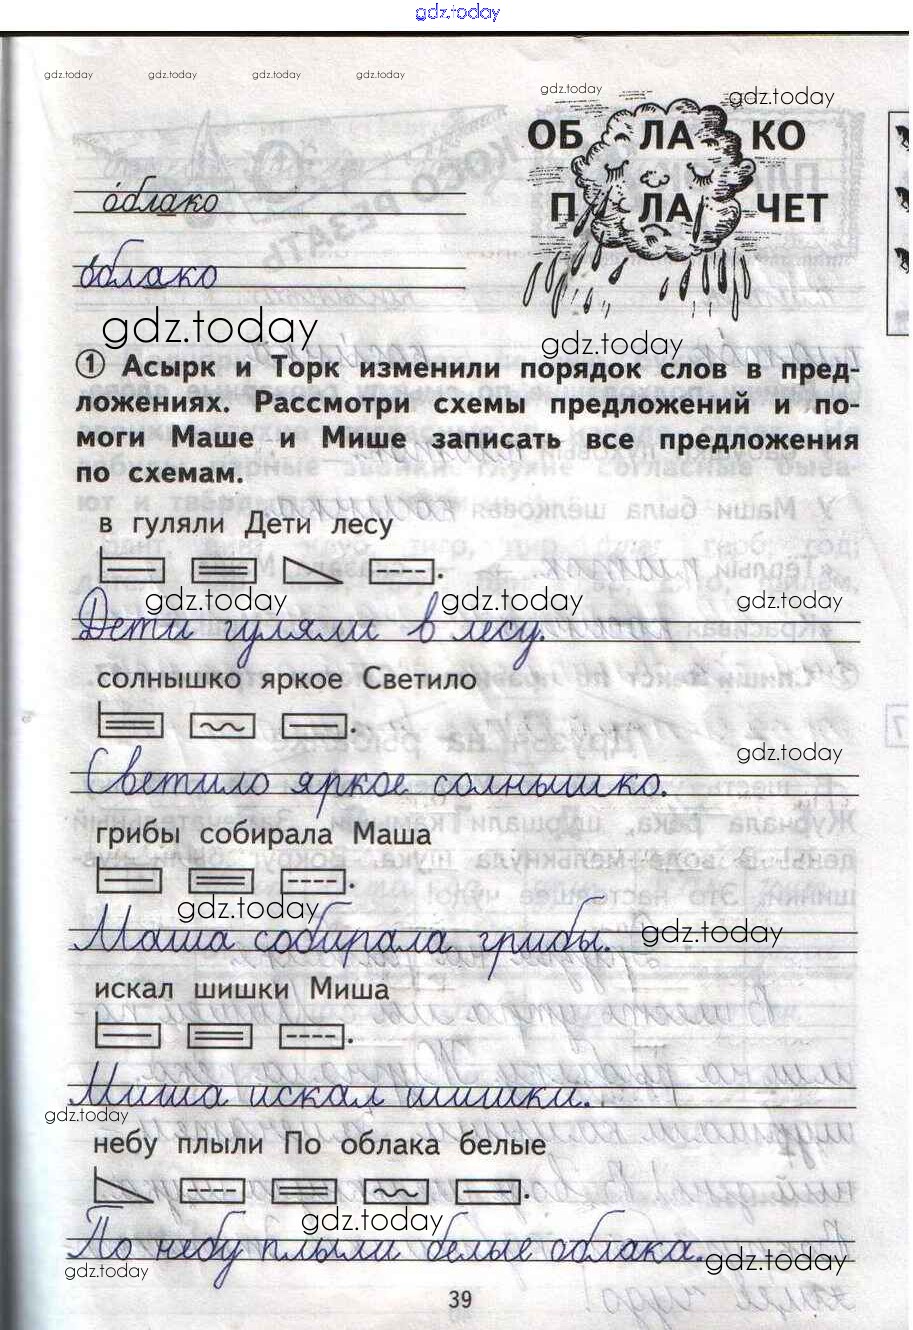 gdz.today
gdz.today gdz.today gdz.today gdz.today
gdz.today
gdz.today
ОБ ЛА КО
П ЛА ЧЕТ
облако
облако
gdz.today
gdz.today
1 Асырк и Торк изменили порядок слов в пред-
ложениях. Рассмотри схемы предложений и по-
моги Маше и Мише записать все предложения
по схемам.
в гуляли Дети лесу
gdz.today gdz.today gdz.today
Дети гуляли в лесу.
солнышко яркое Светило
gdz.today
Светило яркое солнышко.
грибы собирала Маша
gdz.today
Маша собирала грибы.
gdz.today
искал шишки Миша
Миша искал шишки.
gdz.today
небу плыли По облака белые
gdz.today
По небу плыли белые облака.
gdz.today
gdz.today
39